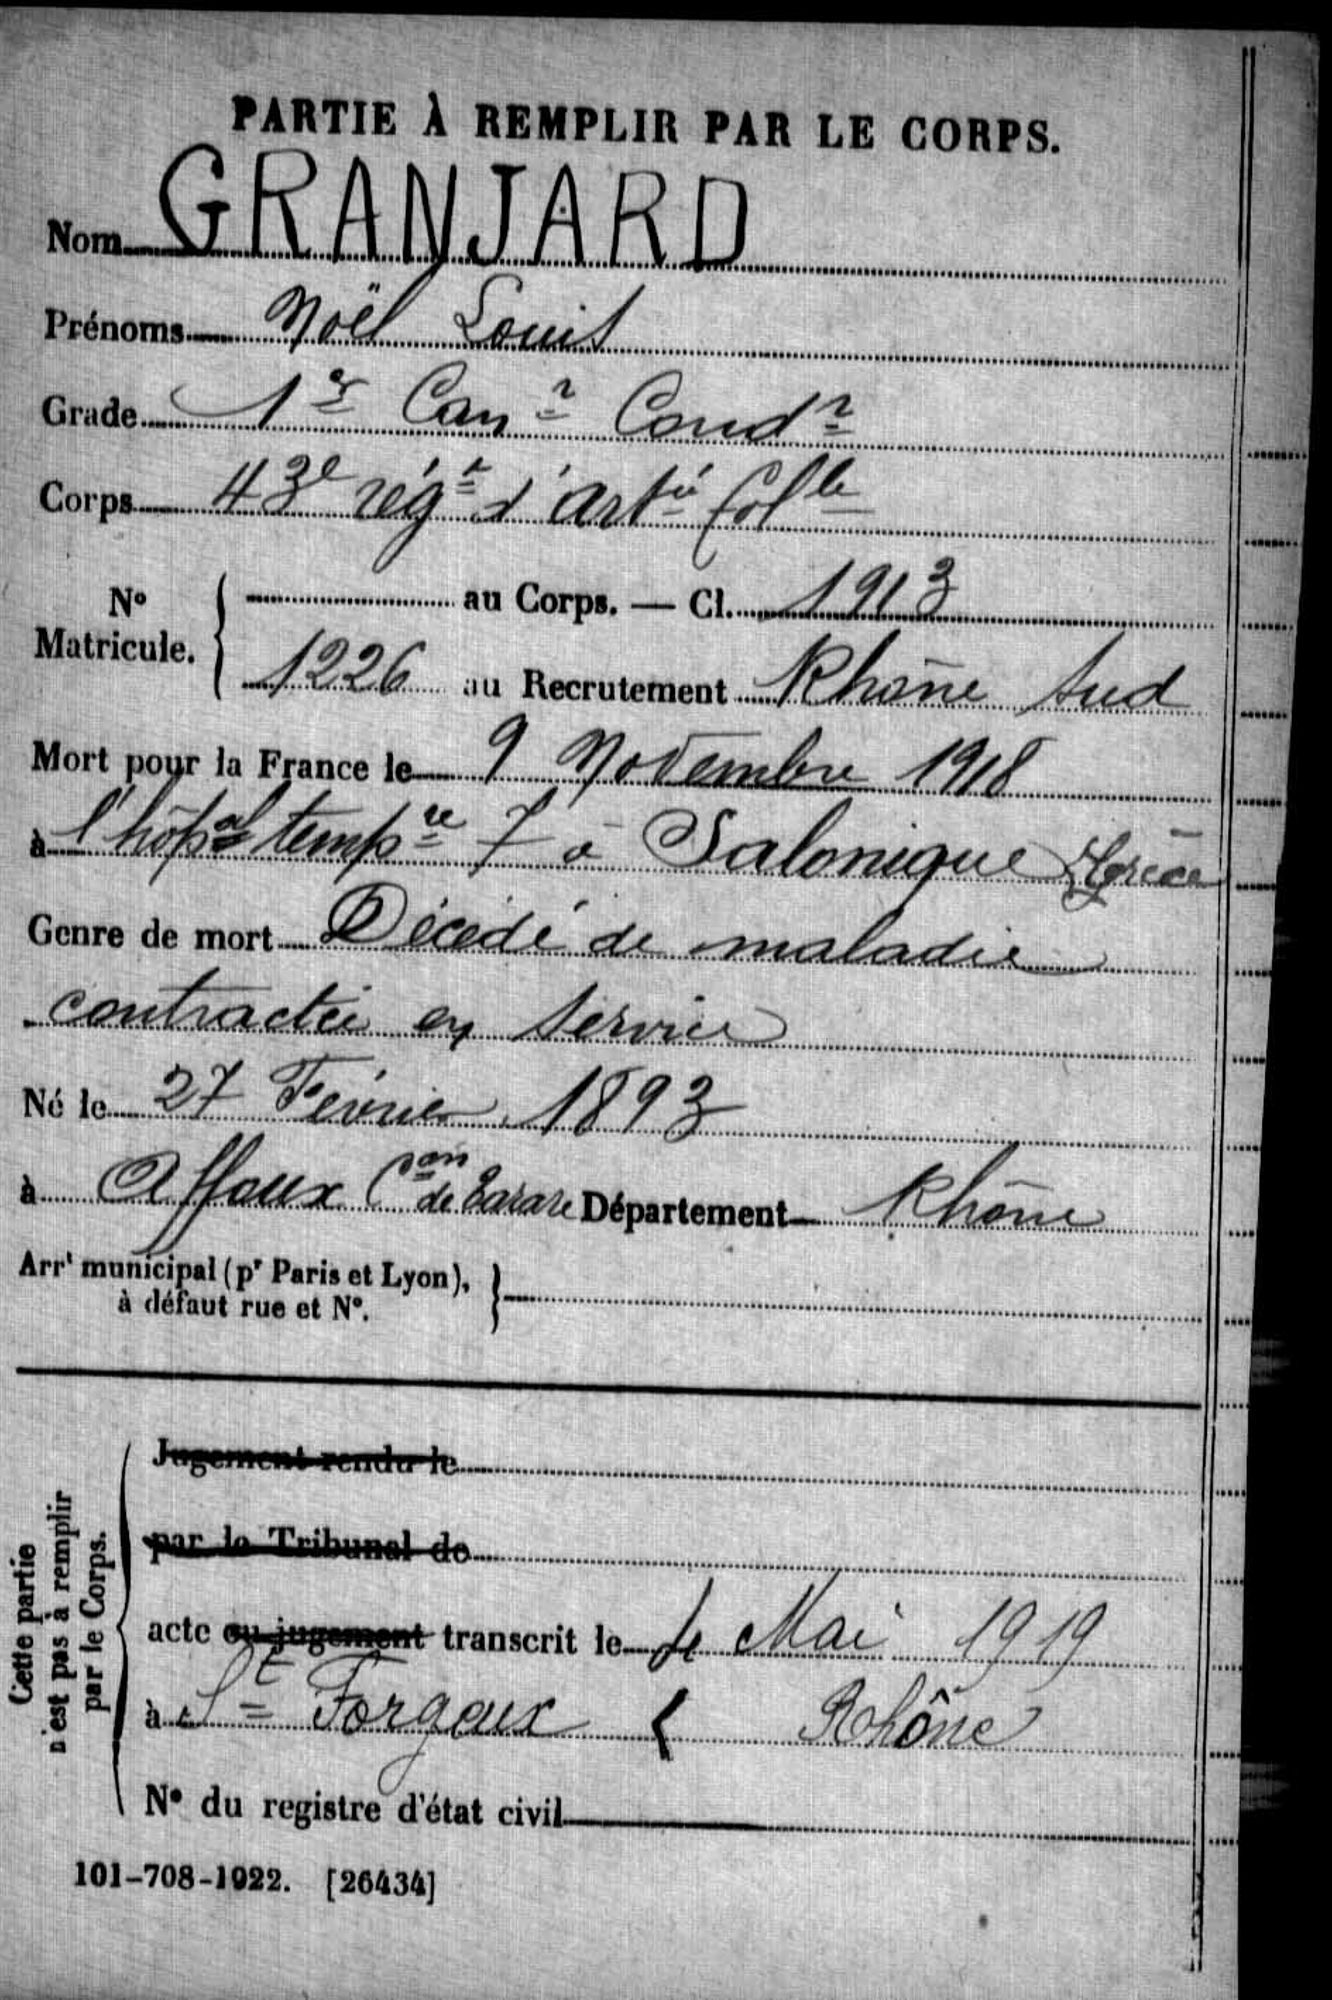 PARTIE À REMPLIR PAR LE CORPS.
Nom GRANJARD
Prénoms Noël Louis
Grade 1er Canr Condr
Corps 43e régt d'artie Colle
No Matricule. { au Corps. — Cl. 1913
1226 au Recrutement Rhône Sud
Mort pour la France le 9 Novembre 1918
à l'hôpal tempre 7 à Salonique Grèce
Genre de mort Décédé de maladie
contractée en service
Né le 27 Février 1893
à Affoux Con de Tarare Département Rhône
Arrt municipal (pr Paris et Lyon),
à défaut rue et No. }
Cette partie
n'est pas à remplir
par le Corps.
Jugement rendu le
par le Tribunal de
acte ou jugement transcrit le 4 Mai 1919
à St Forgeux ( Rhône
No du registre d'état civil
101-708-1922. [26434]